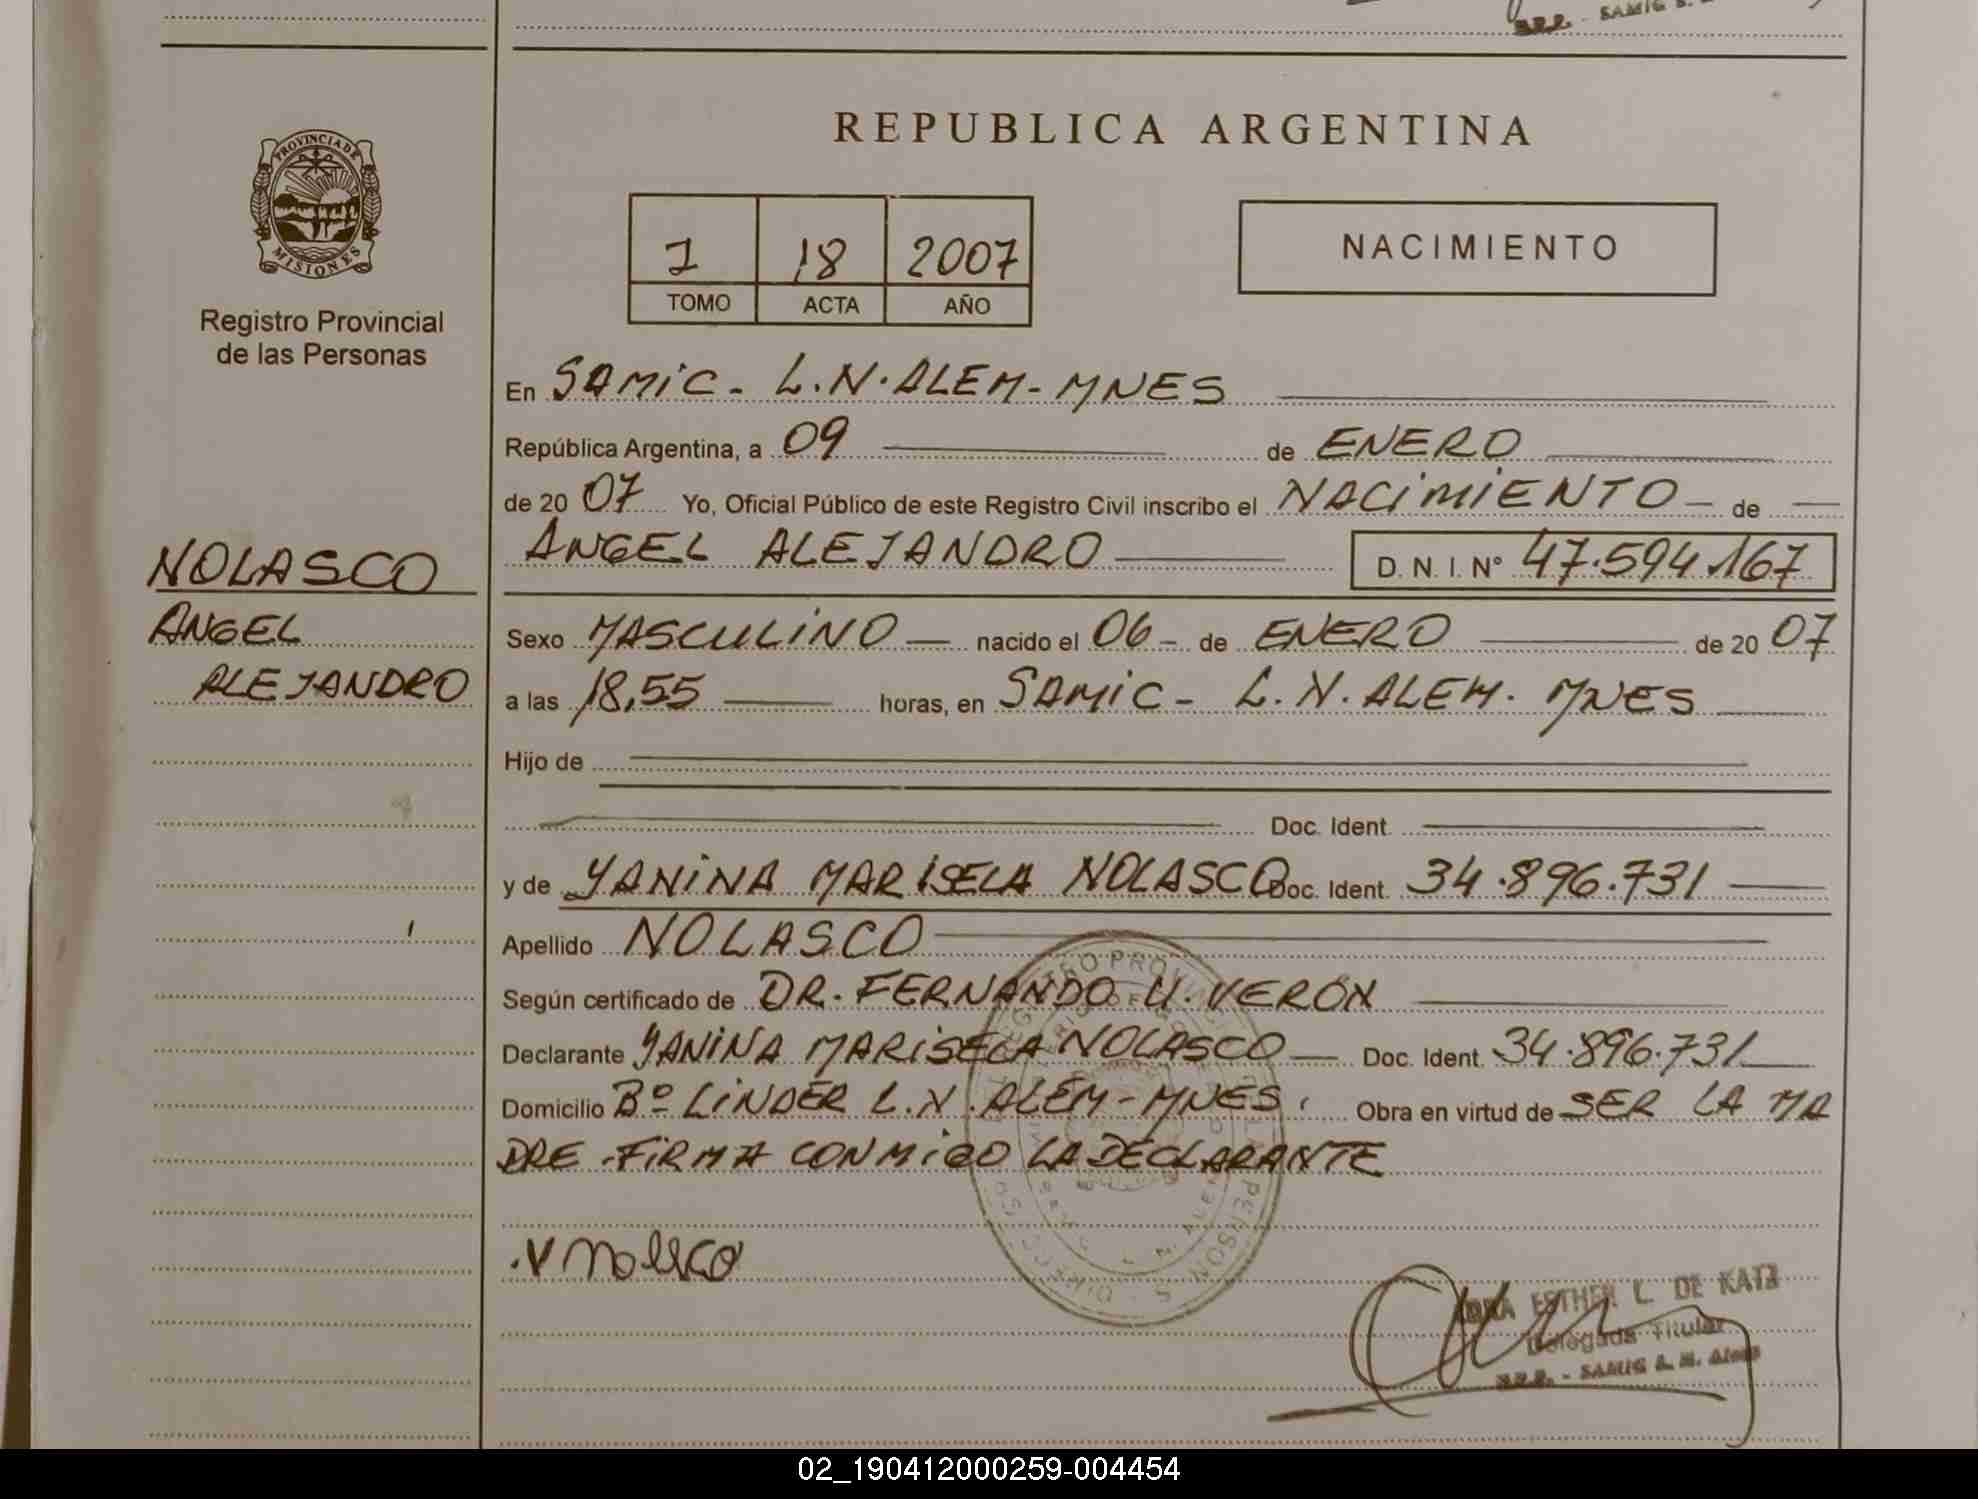 R.P.P. - SAMIC
REPUBLICA ARGENTINA
PROVINCIA DE
MISIONES
Registro Provincial
de las Personas
1 18 2007
TOMO ACTA AÑO
NACIMIENTO
En SAMIC - L.N. ALEM - MNES
República Argentina, a 09 de ENERO
de 20 07 Yo, Oficial Público de este Registro Civil inscribo el NACIMIENTO de
ANGEL ALEJANDRO D. N. I. N° 47.594.167
NOLASCO
ANGEL
ALEJANDRO
Sexo MASCULINO nacido el 06 de ENERO de 20 07
a las 18,55 horas, en SAMIC - L.N. ALEM. MNES
Hijo de
Doc. Ident.
y de YANINA MARISELA NOLASCO Doc. Ident. 34.896.731
Apellido NOLASCO
Según certificado de DR. FERNANDO U. VERÓN
Declarante YANINA MARISELA NOLASCO Doc. Ident. 34.896.731
Domicilio Bº LINDER L.N. ALEM - MNES. Obra en virtud de SER LA MA
DRE. FIRMA CONMIGO LA DECLARANTE
Nolasco
ESTHER L. DE KATZ
Delegada Titular
R.P.P. - SAMIC L. N. Alem
02_190412000259-004454